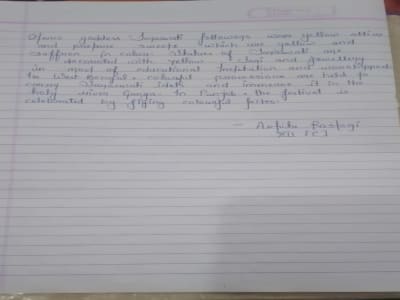 goddess Saraswati followers wear yellow attire
and prepare sweets which are yellow and
saffron in colour. Statues of Saraswati are
decorated with yellow and jewellery
in most of educational Institution and worshipped
In West Bengal, colourful processions are held to
carry Saraswati Idols and immerse it in the
holy river Ganga. In Punjab, the festival is
celebrated by flying colourful kites.
XII [C]